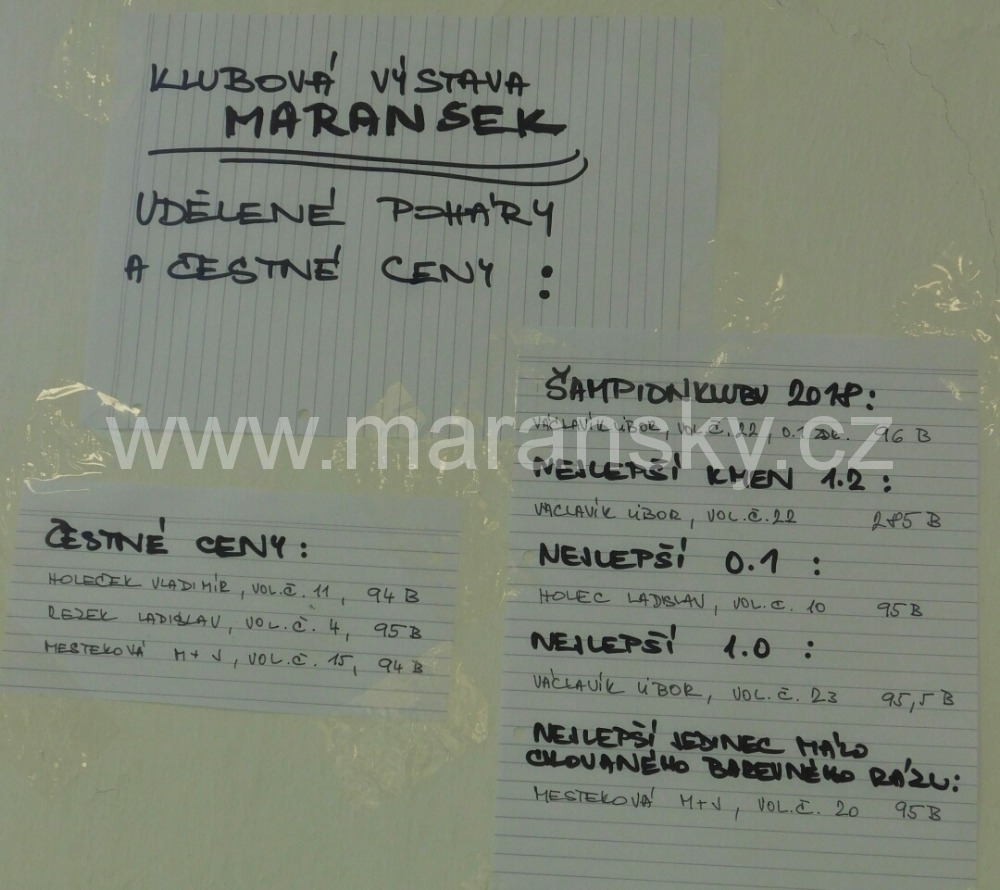 KLUBOVÁ VÝSTAVA
MARANSEK
UDĚLENÉ POHÁRY
A ČESTNÉ CENY :
ŠAMPION KLUBU 2018:
VÁCLAVÍK LIBOR, VOL.Č. 22, 0.1 96 B
NEJLEPŠÍ KMEN 1.2 :
VÁCLAVÍK LIBOR, VOL.Č. 22 285 B
NEJLEPŠÍ 0.1 :
HOLEC LADISLAV, VOL.Č. 10 95B
NEJLEPŠÍ 1.0 :
VÁCLAVÍK LIBOR, VOL.Č. 23 95,5B
NEJLEPŠÍ JEDINEC MÁLO
CHOVANÉHO BAREVNÉHO RÁZU:
MESTEKOVÁ M+J, VOL.Č. 20 95B
www.maransky.cz
ČESTNÉ CENY :
HOLEČEK VLADIMÍR, VOL.Č. 11, 94 B
REZEK LADISLAV, VOL.Č. 4, 95B
MESTEKOVÁ M+J, VOL.Č. 15, 94 B